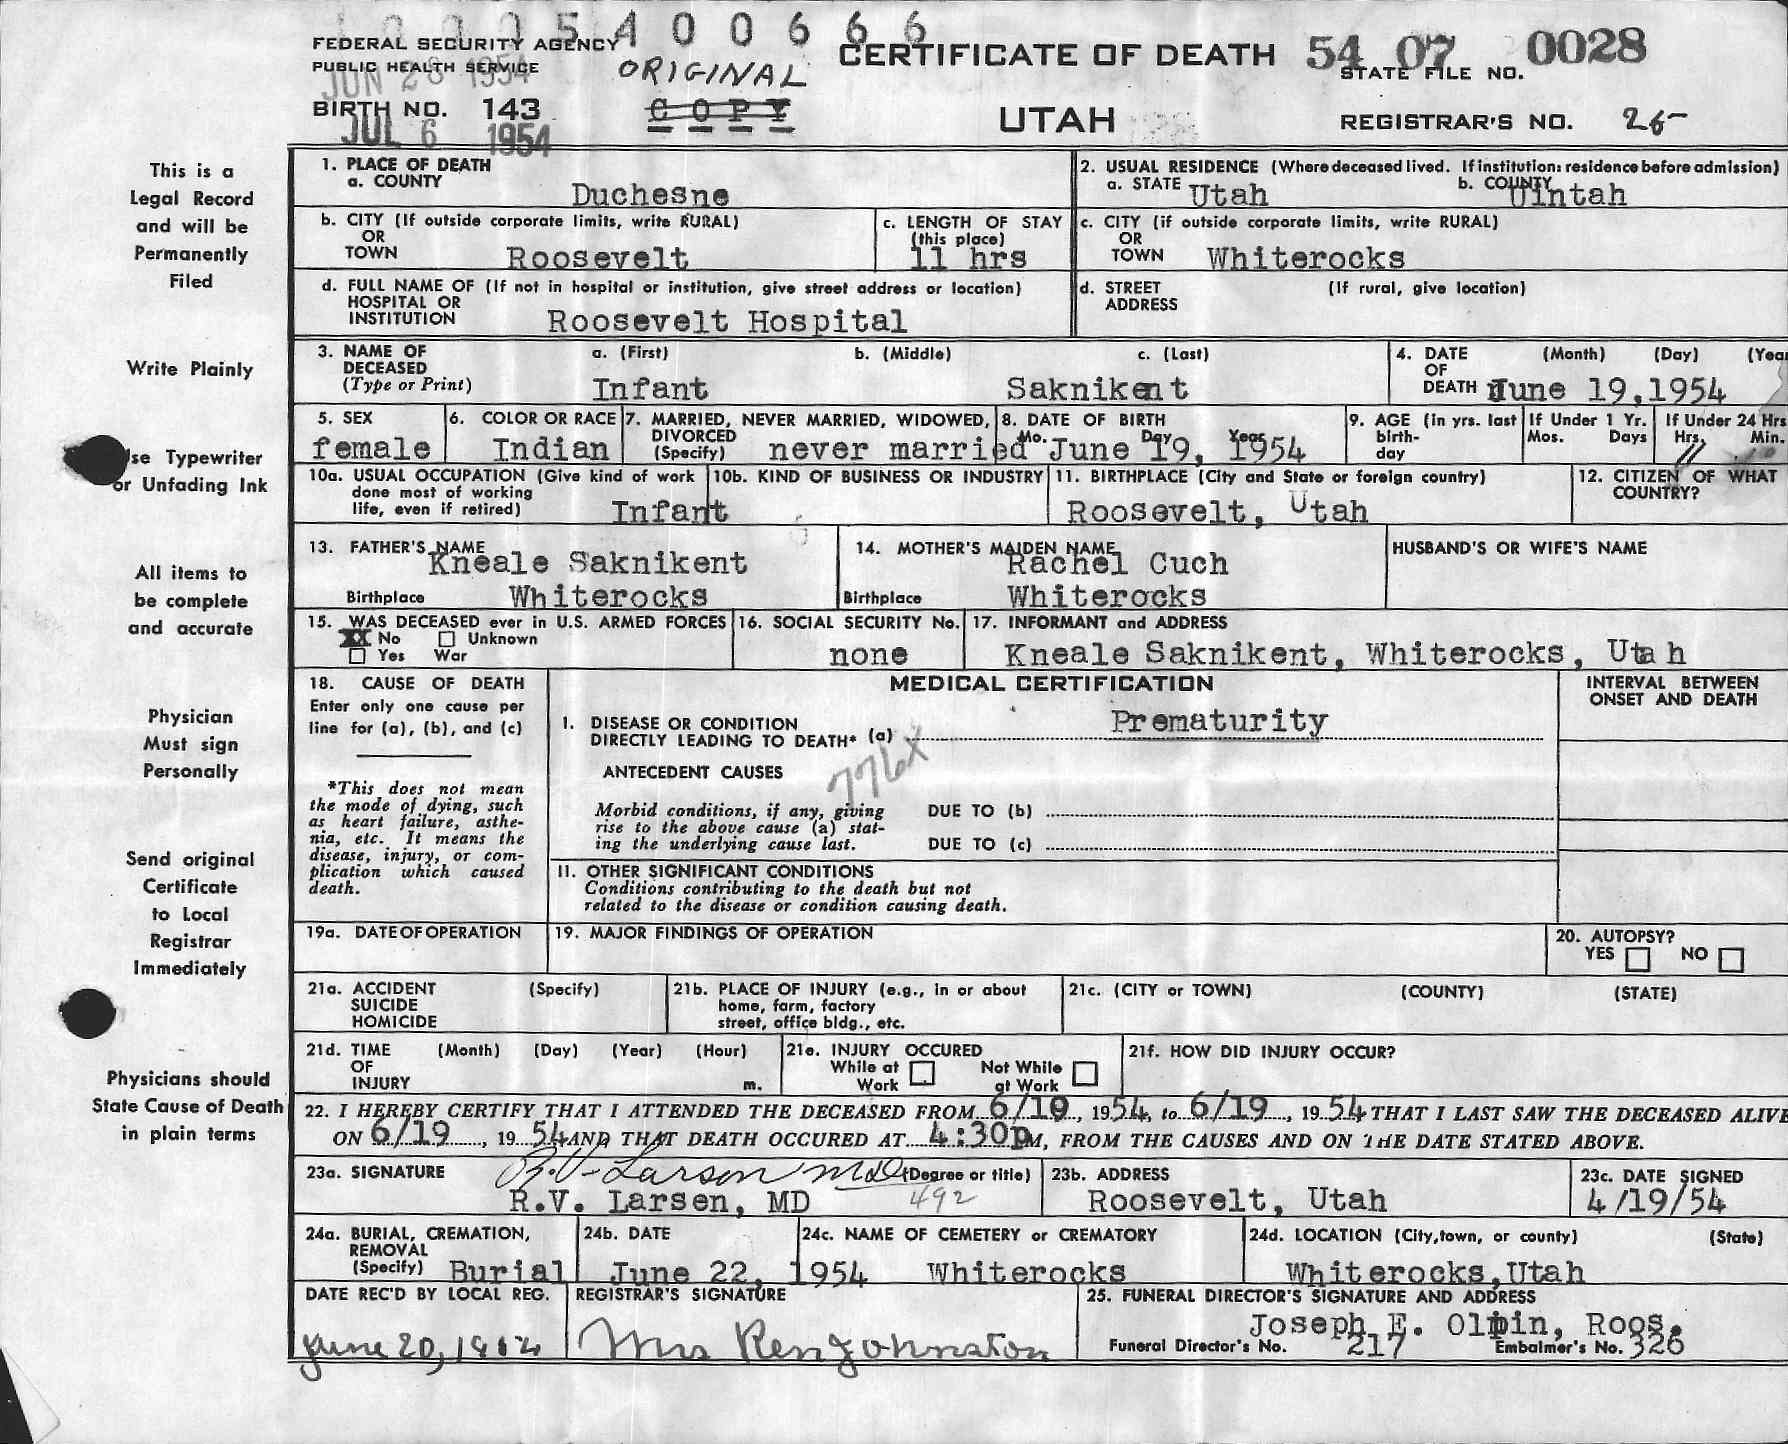 1 0 0 5 4 0 0 6 6 6
FEDERAL SECURITY AGENCY
PUBLIC HEALTH SERVICE
JUN 28 1954
ORIGINAL
COPY
CERTIFICATE OF DEATH
54 07 0028
STATE FILE NO.
BIRTH NO. 143
JUL 6 1954
UTAH
REGISTRAR'S NO. 26
This is a
Legal Record
and will be
Permanently
Filed
Write Plainly
se Typewriter
or Unfading Ink
All items to
be complete
and accurate
Physician
Must sign
Personally
Send original
Certificate
to Local
Registrar
Immediately
Physicians should
State Cause of Death
in plain terms
1. PLACE OF DEATH
a. COUNTY Duchesne
2. USUAL RESIDENCE (Where deceased lived. If institution: residence before admission)
a. STATE Utah b. COUNTY Uintah
b. CITY (If outside corporate limits, write RURAL)
OR
TOWN Roosevelt
c. LENGTH OF STAY
(this place)
11 hrs
c. CITY (if outside corporate limits, write RURAL)
OR
TOWN Whiterocks
d. FULL NAME OF (If not in hospital or institution, give street address or location)
HOSPITAL OR
INSTITUTION Roosevelt Hospital
d. STREET (If rural, give location)
ADDRESS
3. NAME OF a. (First) b. (Middle) c. (Last)
DECEASED
(Type or Print) Infant Saknikent
4. DATE (Month) (Day) (Year
OF
DEATH June 19,1954
5. SEX
female
6. COLOR OR RACE
Indian
7. MARRIED, NEVER MARRIED, WIDOWED,
DIVORCED
(Specify) never married
8. DATE OF BIRTH
Mo. Day Year
June 19, 1954
9. AGE (in yrs. last
birth-
day
If Under 1 Yr.
Mos. Days
If Under 24 Hrs
Hrs. Min.
11
10a. USUAL OCCUPATION (Give kind of work
done most of working
life, even if retired) Infant
10b. KIND OF BUSINESS OR INDUSTRY
11. BIRTHPLACE (City and State or foreign country)
Roosevelt, Utah
12. CITIZEN OF WHAT
COUNTRY?
13. FATHER'S NAME
Kneale Saknikent
Birthplace Whiterocks
14. MOTHER'S MAIDEN NAME
Rachel Cuch
Birthplace Whiterocks
HUSBAND'S OR WIFE'S NAME
15. WAS DECEASED ever in U.S. ARMED FORCES
XX No Unknown
Yes War
16. SOCIAL SECURITY No.
none
17. INFORMANT and ADDRESS
Kneale Saknikent, Whiterocks, Utah
18. CAUSE OF DEATH
Enter only one cause per
line for (a), (b), and (c)
*This does not mean
the mode of dying, such
as heart failure, asthe-
nia, etc. It means the
disease, injury, or com-
plication which caused
death.
MEDICAL CERTIFICATION
INTERVAL BETWEEN
ONSET AND DEATH
I. DISEASE OR CONDITION
DIRECTLY LEADING TO DEATH* (a) Prematurity
776X
ANTECEDENT CAUSES
Morbid conditions, if any, giving
rise to the above cause (a) stat-
ing the underlying cause last.
DUE TO (b)
DUE TO (c)
II. OTHER SIGNIFICANT CONDITIONS
Conditions contributing to the death but not
related to the disease or condition causing death.
19a. DATE OF OPERATION
19. MAJOR FINDINGS OF OPERATION
20. AUTOPSY?
YES NO
21a. ACCIDENT (Specify)
SUICIDE
HOMICIDE
21b. PLACE OF INJURY (e.g., in or about
home, farm, factory
street, office bldg., etc.
21c. (CITY or TOWN) (COUNTY) (STATE)
21d. TIME (Month) (Day) (Year) (Hour)
OF
INJURY m.
21e. INJURY OCCURED
While at Work Not While at Work
21f. HOW DID INJURY OCCUR?
22. I HEREBY CERTIFY THAT I ATTENDED THE DECEASED FROM 6/19, 1954, to 6/19, 1954 THAT I LAST SAW THE DECEASED ALIVE
ON 6/19, 1954 AND THAT DEATH OCCURED AT 4:30p M, FROM THE CAUSES AND ON THE DATE STATED ABOVE.
23a. SIGNATURE R.V. Larsen MD (Degree or title)
R.V. Larsen, MD 492
23b. ADDRESS
Roosevelt, Utah
23c. DATE SIGNED
4/19/54
24a. BURIAL, CREMATION,
REMOVAL
(Specify) Burial
24b. DATE
June 22, 1954
24c. NAME OF CEMETERY or CREMATORY
Whiterocks
24d. LOCATION (City, town, or county) (State)
Whiterocks,Utah
DATE REC'D BY LOCAL REG.
June 20, 1954
REGISTRAR'S SIGNATURE
Mrs Ren Johnston
25. FUNERAL DIRECTOR'S SIGNATURE AND ADDRESS
Joseph E. Olpin, Roos.
Funeral Director's No. 217 Embalmer's No. 326